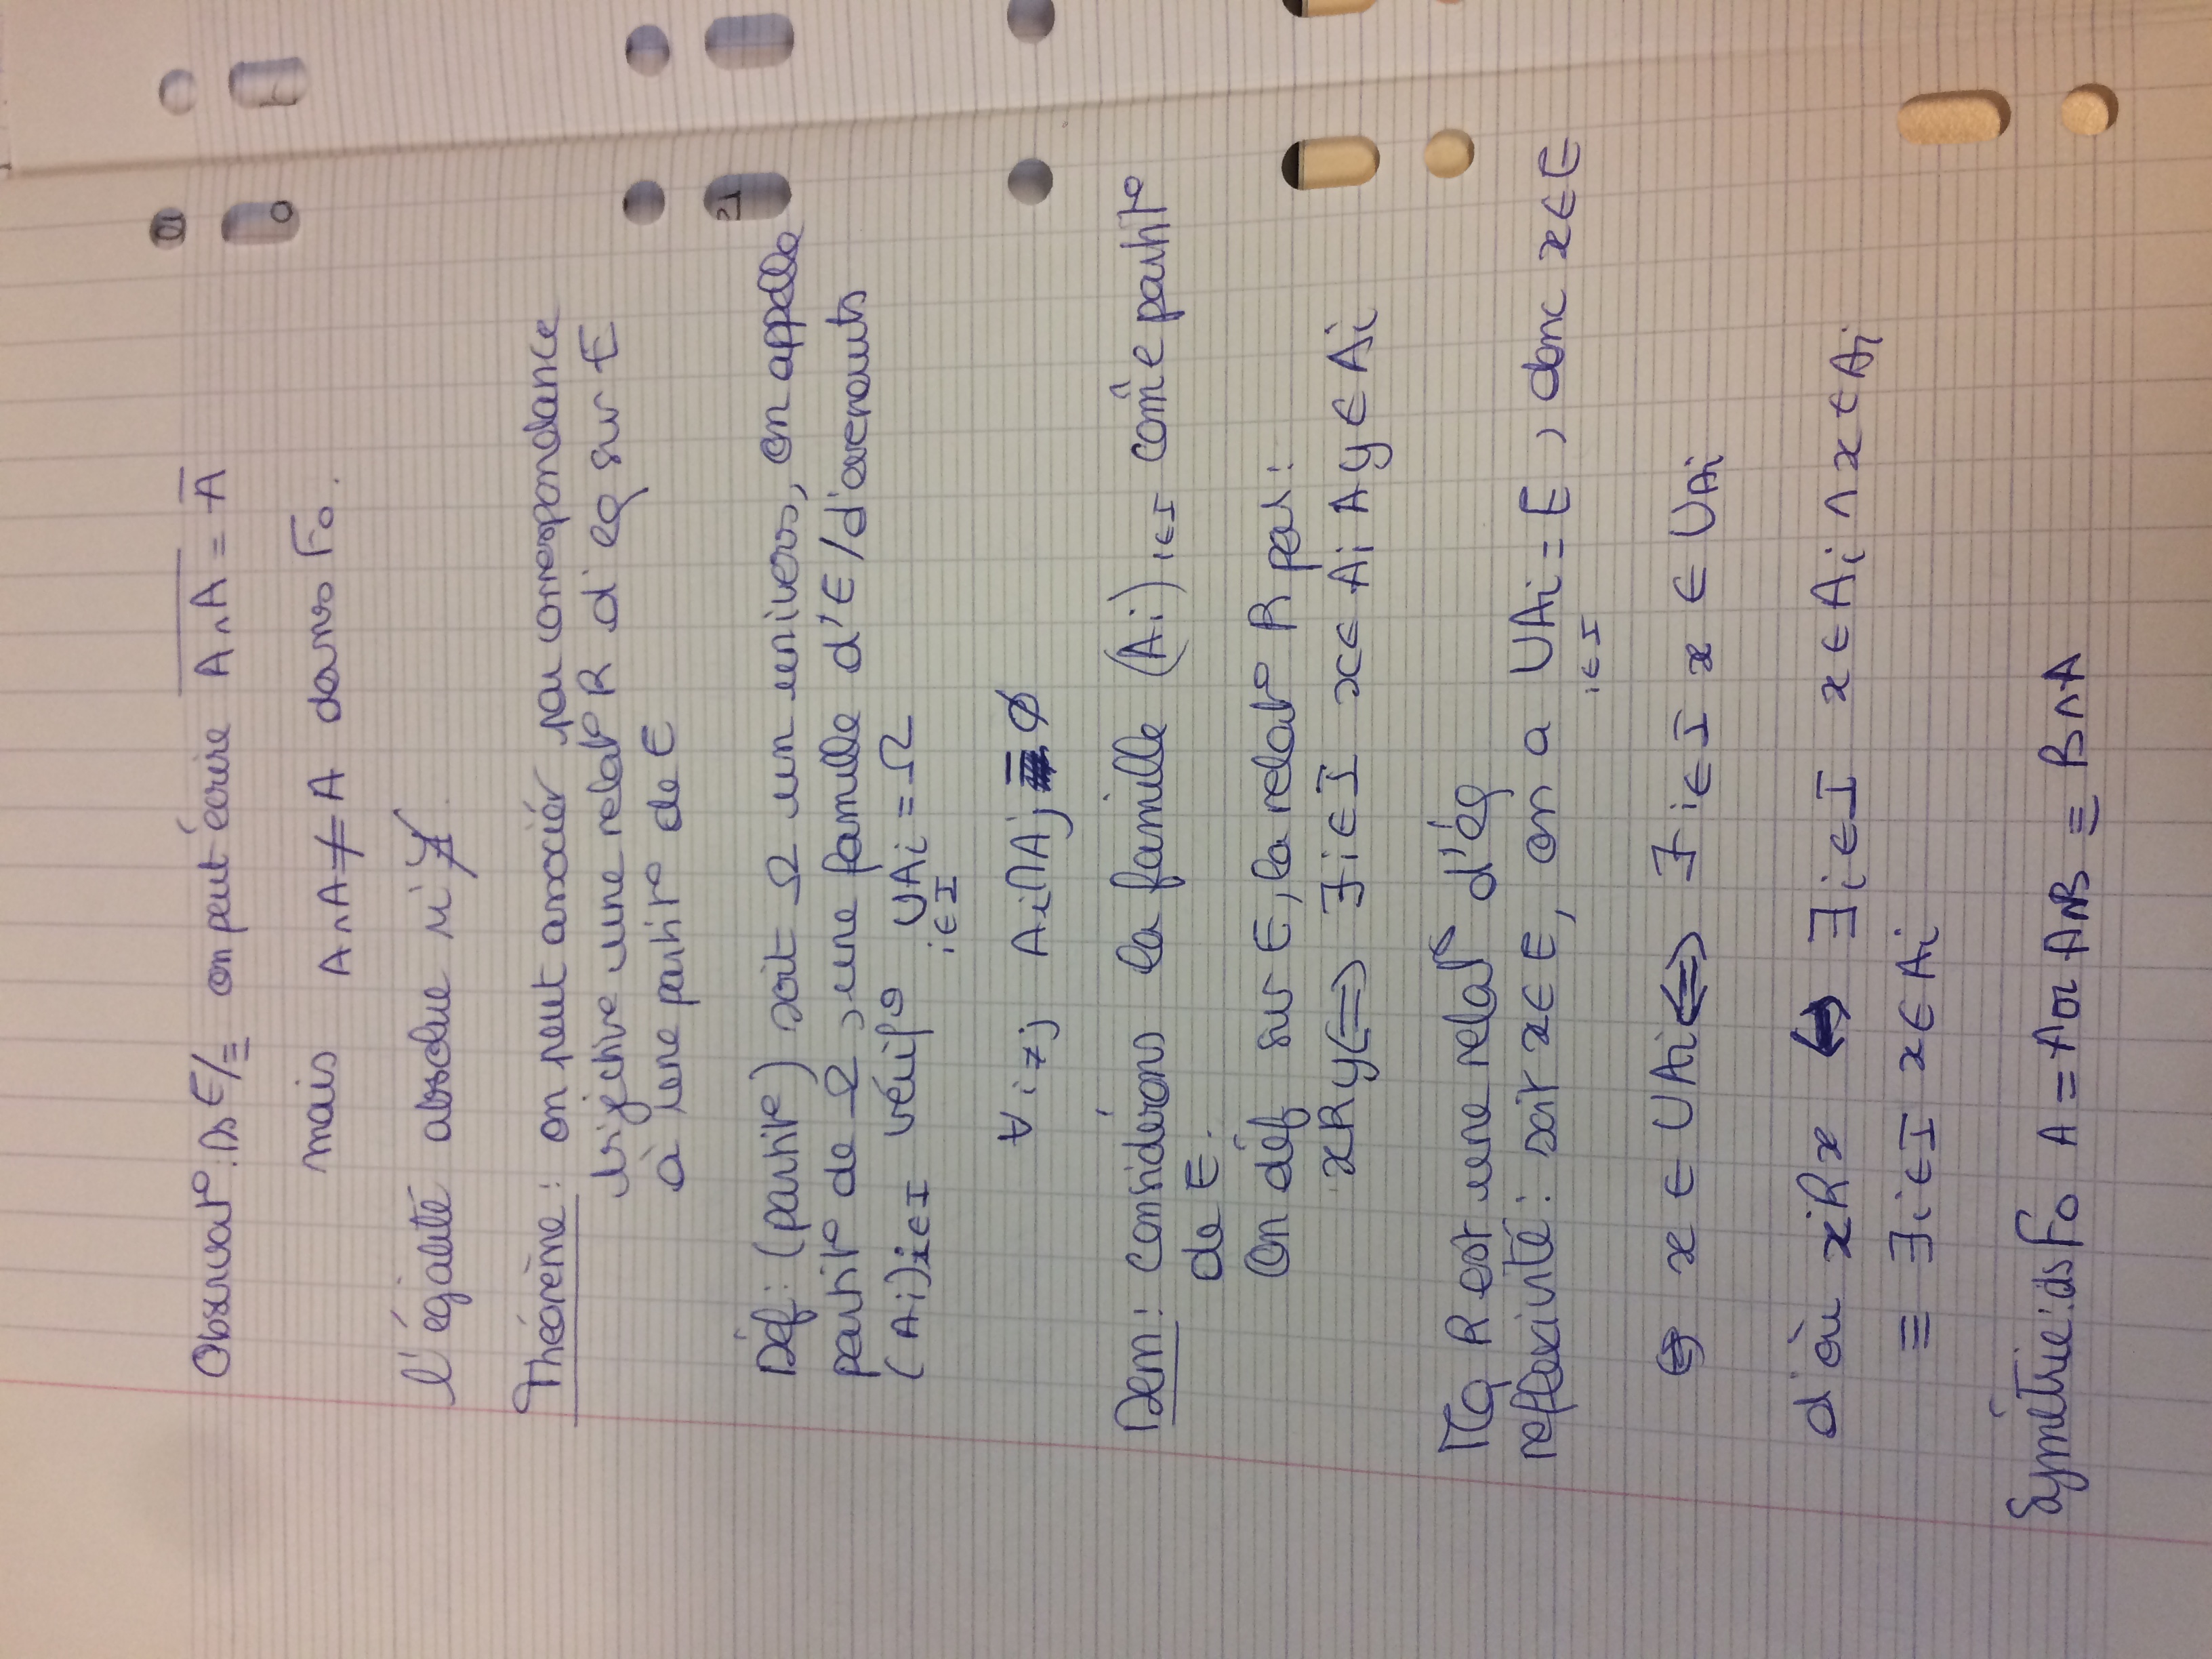 Observat°: Ds E/≡ on peut écrire \overline{A∧A} = \overline{A}
mais A∧A ≠ A dans F₀.
l'égalité absolue n'∄.
Théorème : on peut associér par correspondance
bijective une relat° R d'eq sur E
à une partit° de E
Déf : (partit°) soit Ω un univers, on appelle
partit° de Ω, une famille d'E/d'evenements
(Ai)i∈I vérif° ∪Ai = Ω
i∈I
∀ i≠j Ai∩Aj = ∅
Dem : considérons la famille (Ai)i∈I com̂e partit°
de E.
On déf sur E, la relat° R par :
xRy ⇔ ∃ i∈I x∈Ai ∧ y∈Ai
Mq R est une relat° d'éq
reflexivité : soit x∈E, on a ∪Ai = E, donc x∈E
i∈I
⇔ x ∈ ∪Ai ⇔ ∃ i∈I x ∈ ∪Ai
d'où xRx ⇔ ∃ i∈I x∈Ai ∧ x∈Ai
≡ ∃ i∈I x∈Ai
Symétrie : ds F₀ A = A or A∧B ≡ B∧A